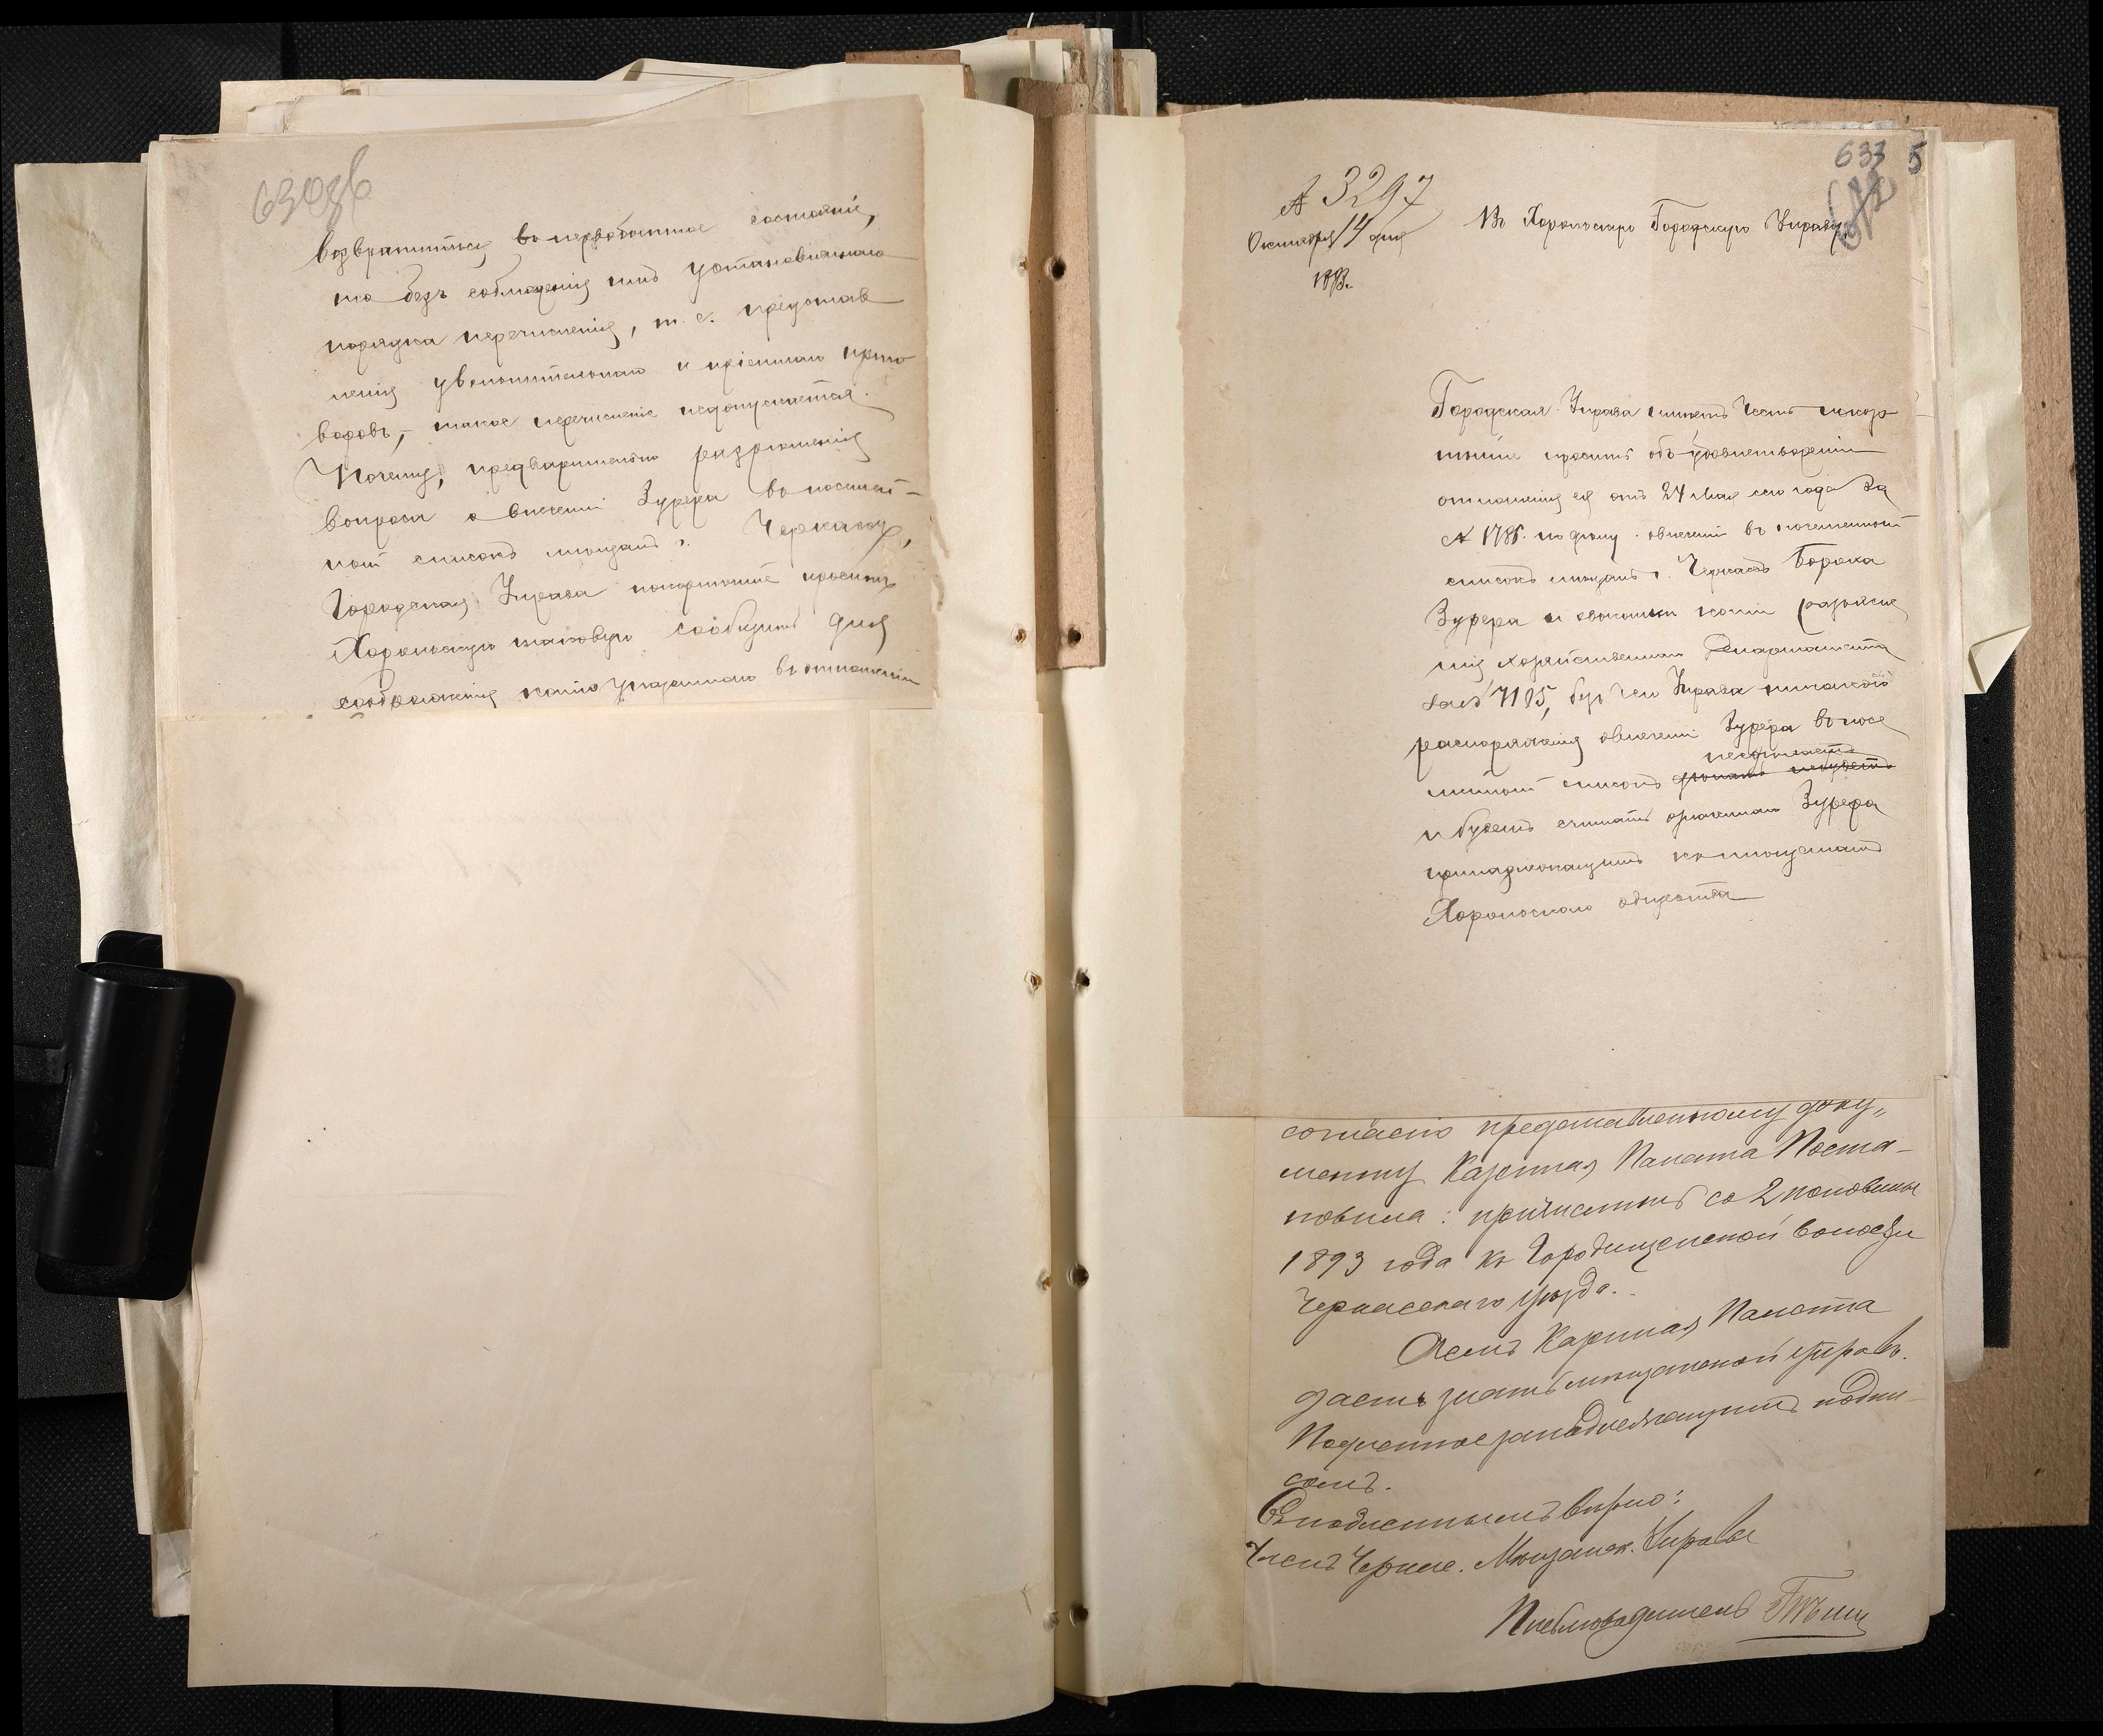 630об
возвратиться въ первобытное состояніе,
то безъ соблюденія имъ установленнаго
порядка перечисленія, т. е. представ
ленія увольнительнаго и пріемнаго приго
воровъ, – такое перечисленіе недопускается.
Почему, предварительно разрѣшенія
вопроса о внесеніи Зурера въ посемей-
ный списокъ мѣщанъ г. Черкасъ,
Городская Управа покорнѣйше проситъ
Хорольскую таковую сообщить для
соображенія копію указаннаго въ отношеніи
633 5
№ 3297
Октября 14 дня
1893.
Въ Хорольскую Городскую Управу.
Городская Управа имѣетъ честь покор
нѣйше просить объ удовлетвореніи
отношенія ея отъ 24 Мая сего года за
№ 1786. по дѣлу о внесеніи въ посемейный
списокъ мѣщанъ г. Черкасъ Бороха
Зурера и высылки копіи разъясне
нія Хозяйственнаго Департамента
за № 7105, безъ чего Управа никакого
распоряженія о внесеніи Зурера въ посе
несдѣлаетъ
мейный списокъ
и будетъ считать означеннаго Зурера
принадлежащимъ къ мѣщанамъ
Хорольскаго общества
согласно представленному доку„
менту Казенная Палата Поста-
новила: причислить со 2 половины
1893 года къ Городищенской волости
Черкасскаго уѣзда.
О чемъ Казенная Палата
даетъ знать мѣщанской управѣ.
Подлинное за надлежащимъ подпи-
сомъ.
Съ подлиннымъ вѣрно:
Членъ Черкас. Мѣщанск. Управы
Письмоводитель